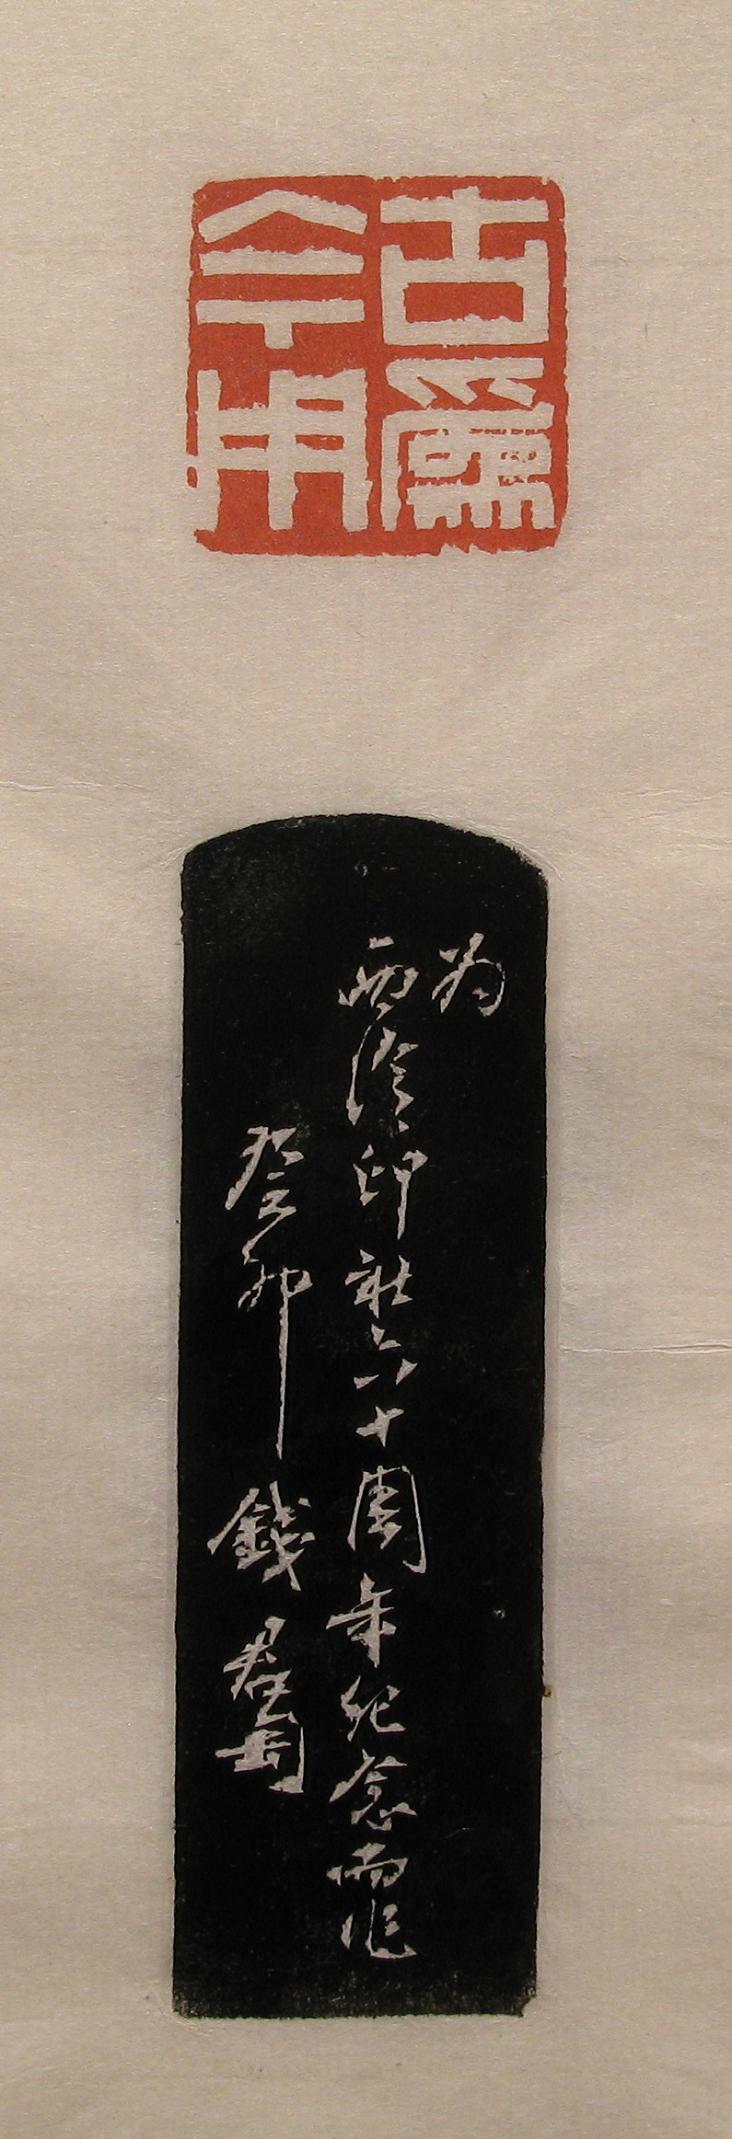 古為
今用
为
西泠印社六十周年纪念而作
癸卯 錢君匋